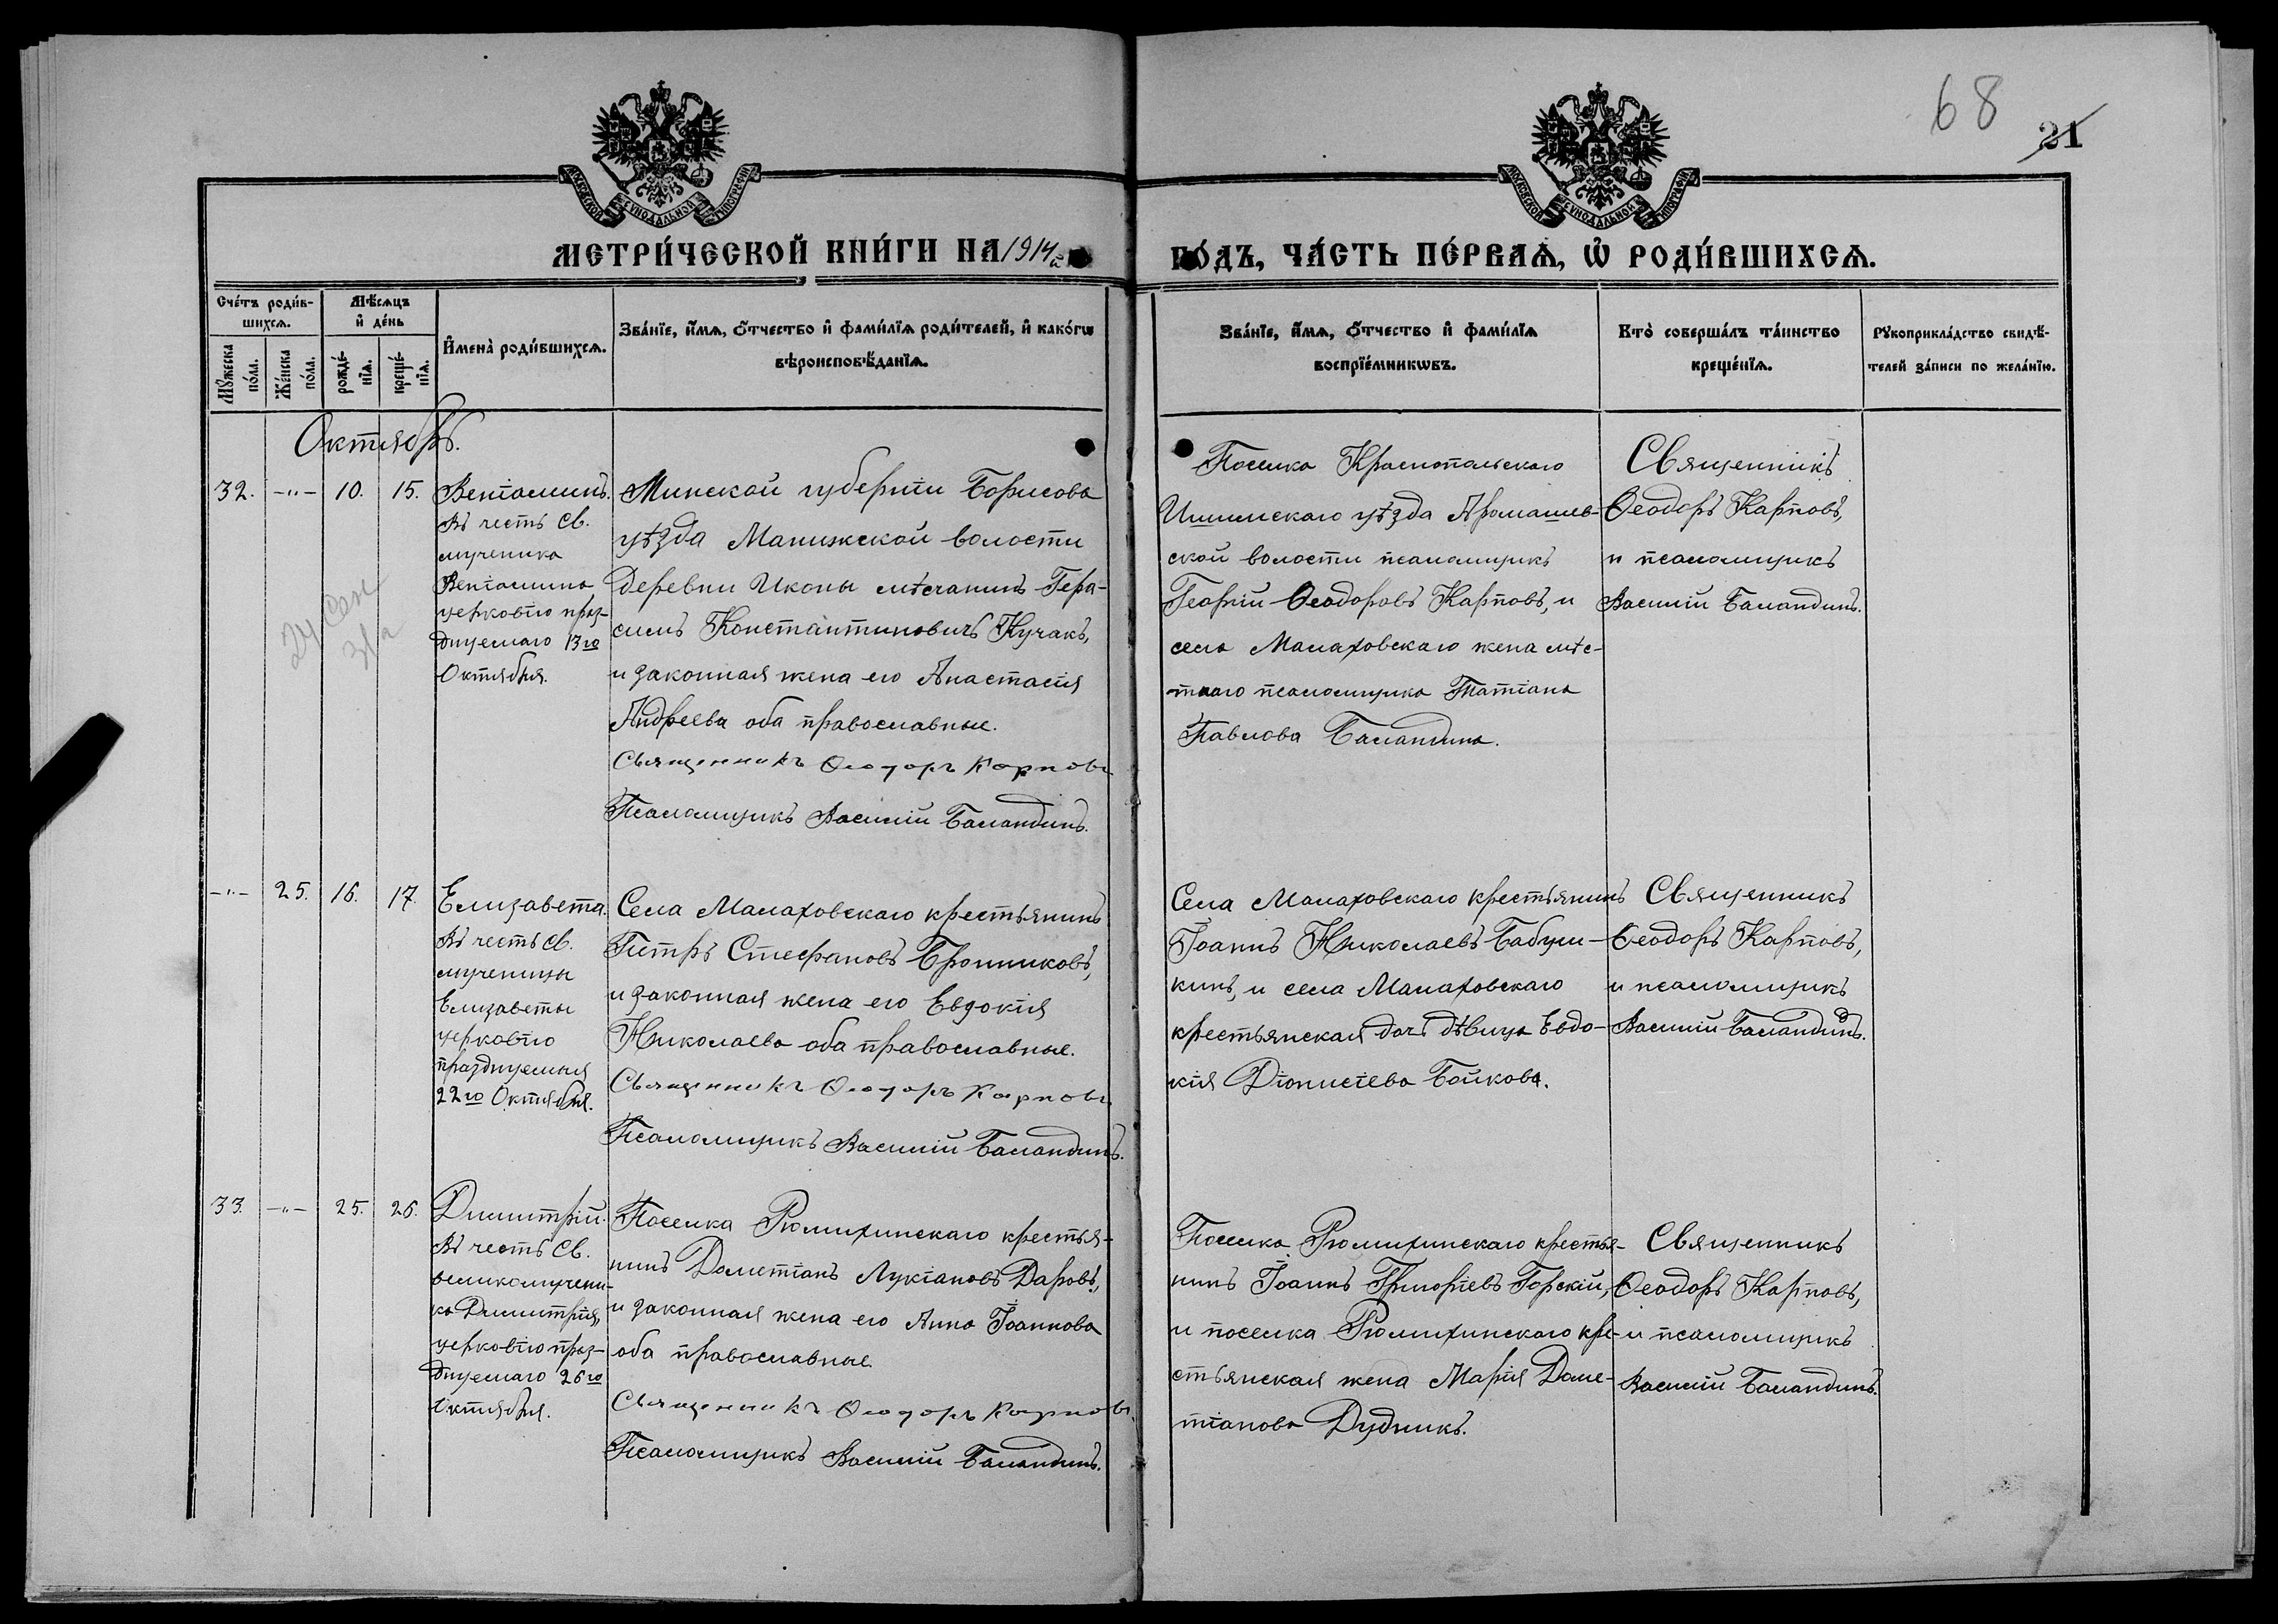 68
21
МОСКОВСКОЙ СѴНОДАЛЬНОЙ ТИПОГРАФІИ
МОСКОВСКОЙ СѴНОДАЛЬНОЙ ТИПОГРАФІИ
МЕТРИ́ЧЕСКОЙ КНИ́ГИ НА 1914 й
ГО́ДЪ, ЧА́СТЬ ПЕ́РВАѦ, Ѡ҆ РОДИ́ВШИХСѦ.
Сче́тъ роди́в-
шихсѧ.
Мѣ́сѧцъ
и҆ де́нь
Мꙋ́жеска по́ла.
Же́нска по́ла.
рожде́-нїѧ.
креще́-нїѧ.
И҆мена̀ роди́вшихсѧ.
Зва́нїе, и҆́мѧ, ѻ҆́тчество и҆ фами́лїѧ роди́телей, и҆ како́гѡ
вѣроисповѣ́данїѧ.
Зва́нїе, и҆́мѧ, ѻ҆́тчество и҆ фами́лїѧ
воспрїе́мникѡвъ.
Кто̀ соверша́лъ та́инство
креще́нїѧ.
Рꙋкоприкла́дство свидѣ́-
телей за́писи по жела́нїю.
Октябрь.
32. -"- 10. 15.
Веніаминъ.
Въ честь св.
мученика
Веніамина
церковію праз-
днуемаго 13го
Октября.
Минской губерніи Борисова
уѣзда Манижской волости
деревни Иконы мѣщанинъ Гера-
симъ Константиновичъ Кучакъ,
и законная жена его Анастасія
Андреева оба православные.
Священникъ Ѳеодоръ Карповъ
Псаломщикъ Василій Баландинъ.
Поселка Краснопольскаго
Ишимскаго уѣзда Аромашев-
ской волости псаломщикъ
Георгій Ѳеодоровъ Карповъ, и
села Малаховскаго жена мѣс-
тнаго псаломщика Татіана
Павлова Баландина.
Священникъ
Ѳеодоръ Карповъ,
и псаломщикъ
Василій Баландинъ.
-"- 25. 16. 17.
Елизавета.
Въ честь св.
мученицы
Елизаветы
церковію
празднуемыя
22го Октября.
Села Малаховскаго крестьянинъ
Петръ Стефановъ Бронниковъ,
и законная жена его Евдокія
Николаева оба православные.
Священникъ Ѳеодоръ Карповъ
Псаломщикъ Василій Баландинъ.
Села Малаховскаго крестьянинъ
Іоаннъ Николаевъ Бабуш-
кинъ, и села Малаховскаго
крестьянская дочь дѣвица Евдо-
кія Діонисіева Бойкова.
Священникъ
Ѳеодоръ Карповъ,
и псаломщикъ
Василій Баландинъ.
33. -"- 25. 26.
Димитрій.
Въ честь св.
великомучени-
ка Димитрія,
церковію праз-
днуемаго 26го
Октября.
Поселка Рюмихинскаго крестья-
нинъ Дометіанъ Лукіановъ Даровъ,
и законная жена его Анна Іоаннова
оба православные.
Священникъ Ѳеодоръ Карповъ.
Псаломщикъ Василій Баландинъ.
Поселка Рюмихинскаго крестья-
нинъ Іоаннъ Григоріевъ Горскій,
и поселка Рюмихинскаго кре-
стьянская жена Марія Доме-
тіанова Дудникъ.
Священникъ
Ѳеодоръ Карповъ,
и псаломщикъ
Василій Баландинъ.